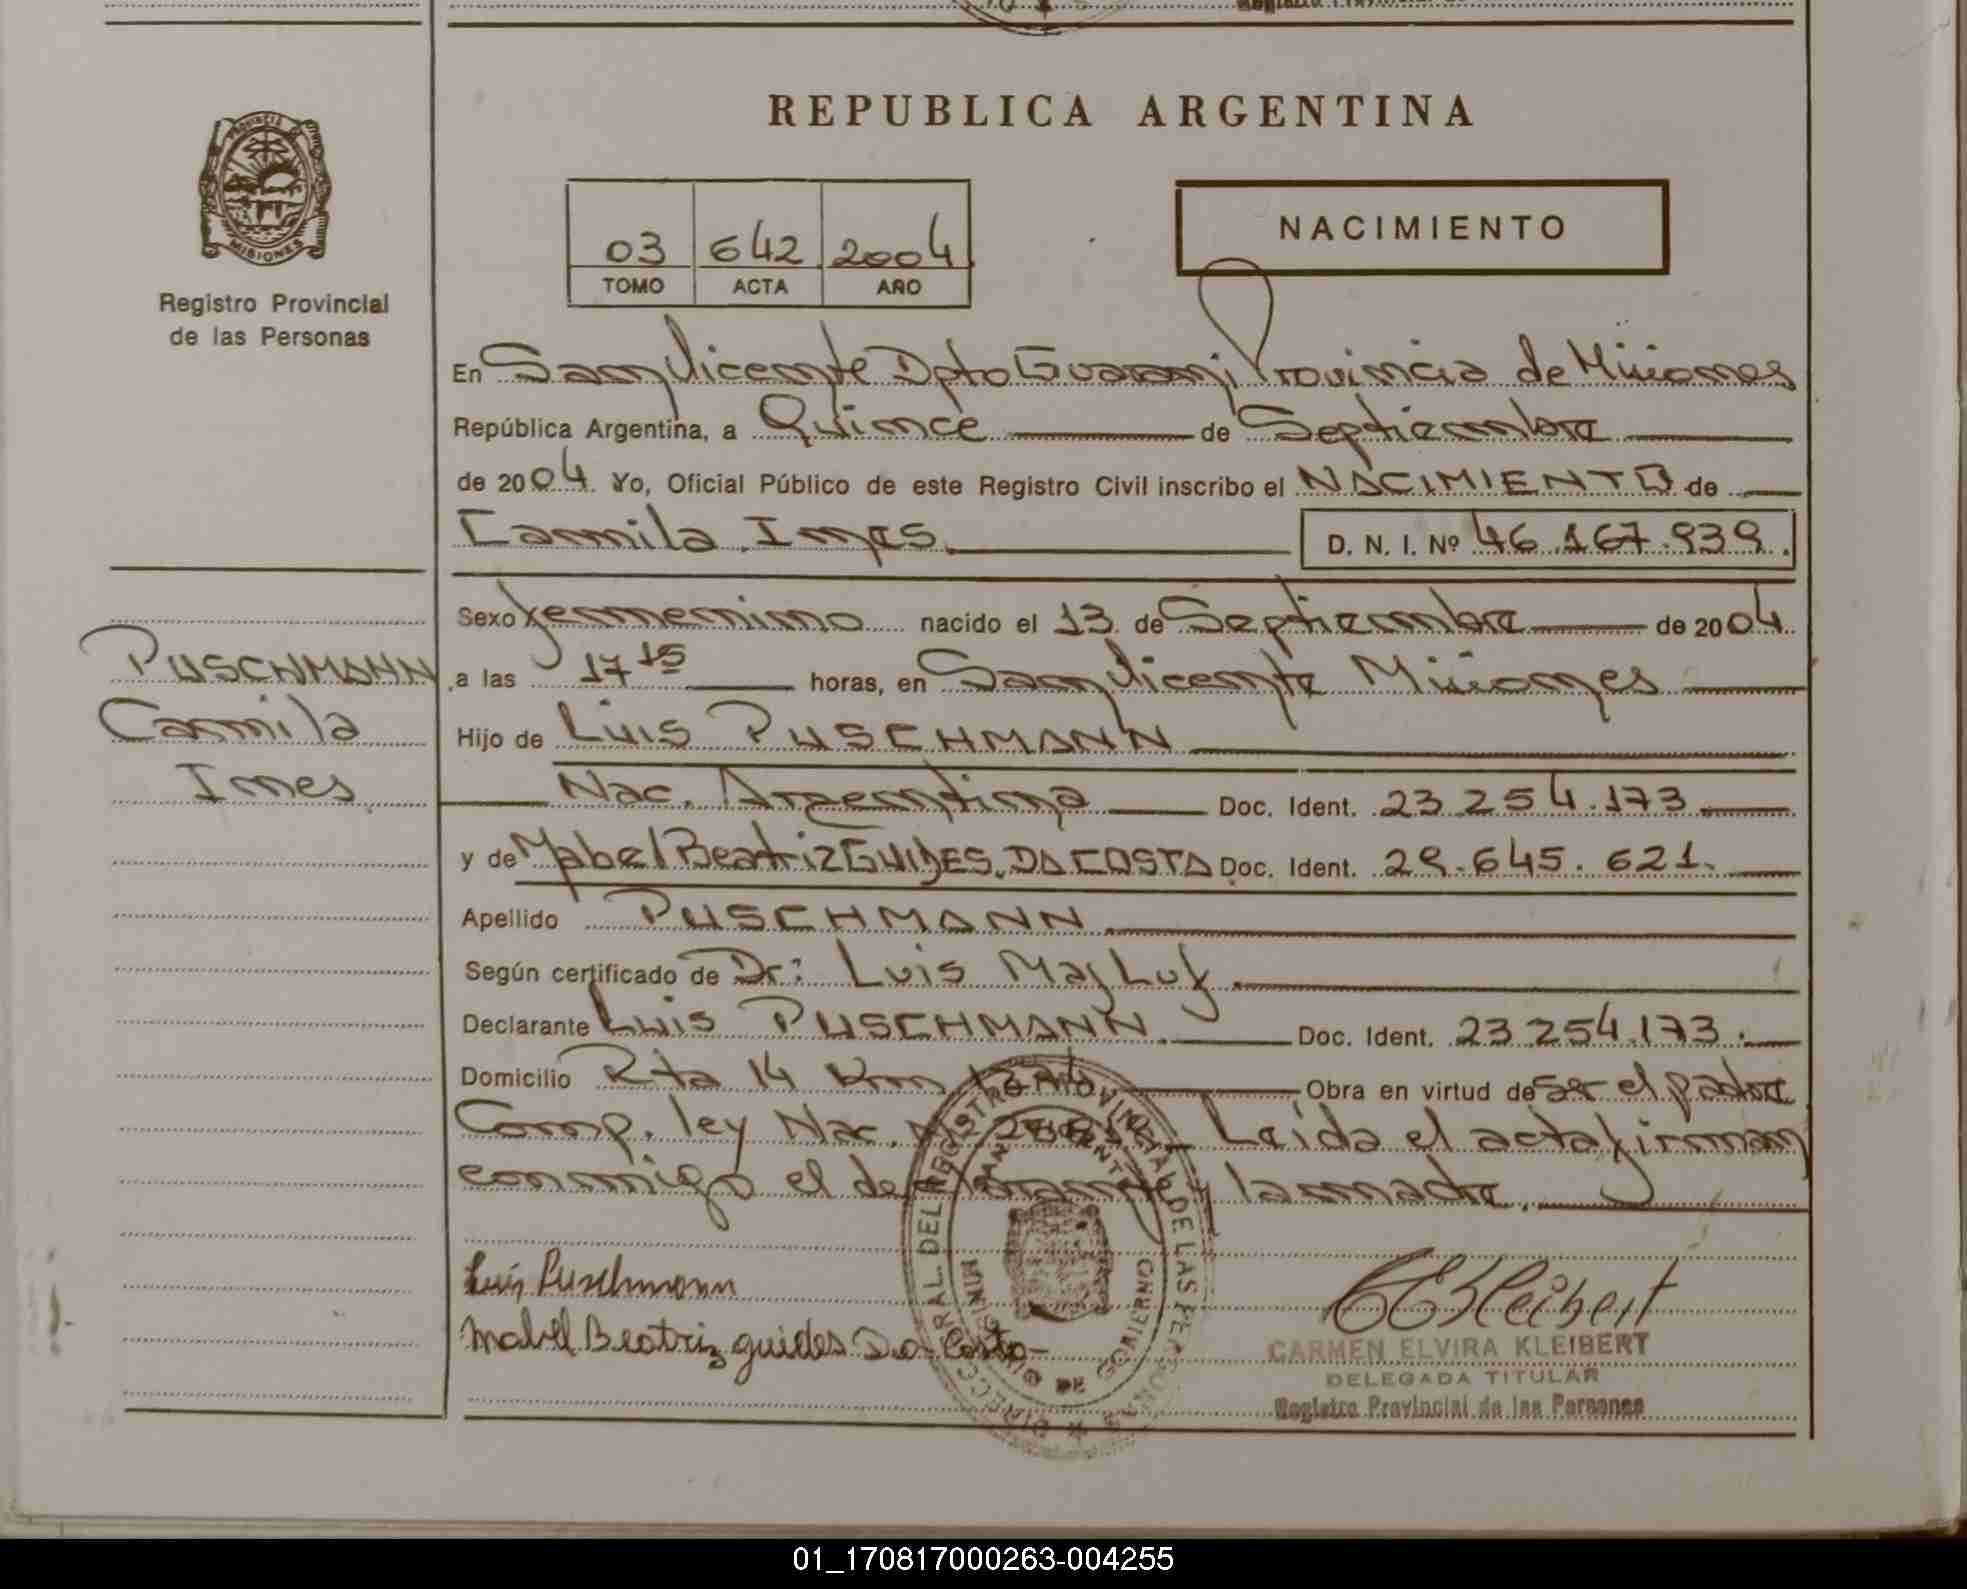 REPUBLICA ARGENTINA
PROVINCIA DE
MISIONES
Registro Provincial
de las Personas
03 642 2004
TOMO ACTA AÑO
NACIMIENTO
En San Vicente Dpto Guarani Provincia de Misiones
República Argentina, a Quince de Septiembre
de 2004. Yo, Oficial Público de este Registro Civil inscribo el NACIMIENTO de
Camila Ines D. N. I. Nº 46.167.939.
Sexo femenino nacido el 13 de Septiembre de 2004
a las 17 15 horas, en San Vicente Misiones
PUSCHMANN
Camila
Ines
Hijo de Luis PUSCHMANN
Nac. Argentina Doc. Ident. 23.254.173
y de Mabel Beatriz GUIDES DA COSTA Doc. Ident. 29.645.621.
Apellido PUSCHMANN
Según certificado de Dr: Luis Majluf
Declarante Luis PUSCHMANN. Doc. Ident. 23.254.173.
Domicilio Rta 14 Km Obra en virtud de ser el padre
Comp. ley Nac. Leida el acta firman
conmigo el declarante y la madre.
Luis Puschmann
Mabel Beatriz guides Da Costa
CEKleibert
CARMEN ELVIRA KLEIBERT
DELEGADA TITULAR
Registro Provincial de las Personas
DIRECCION GRAL DEL REGISTRO PROVINCIAL DE LAS PERSONAS
SAN VICENTE
MINISTERIO DE GOBIERNO
01_170817000263-004255